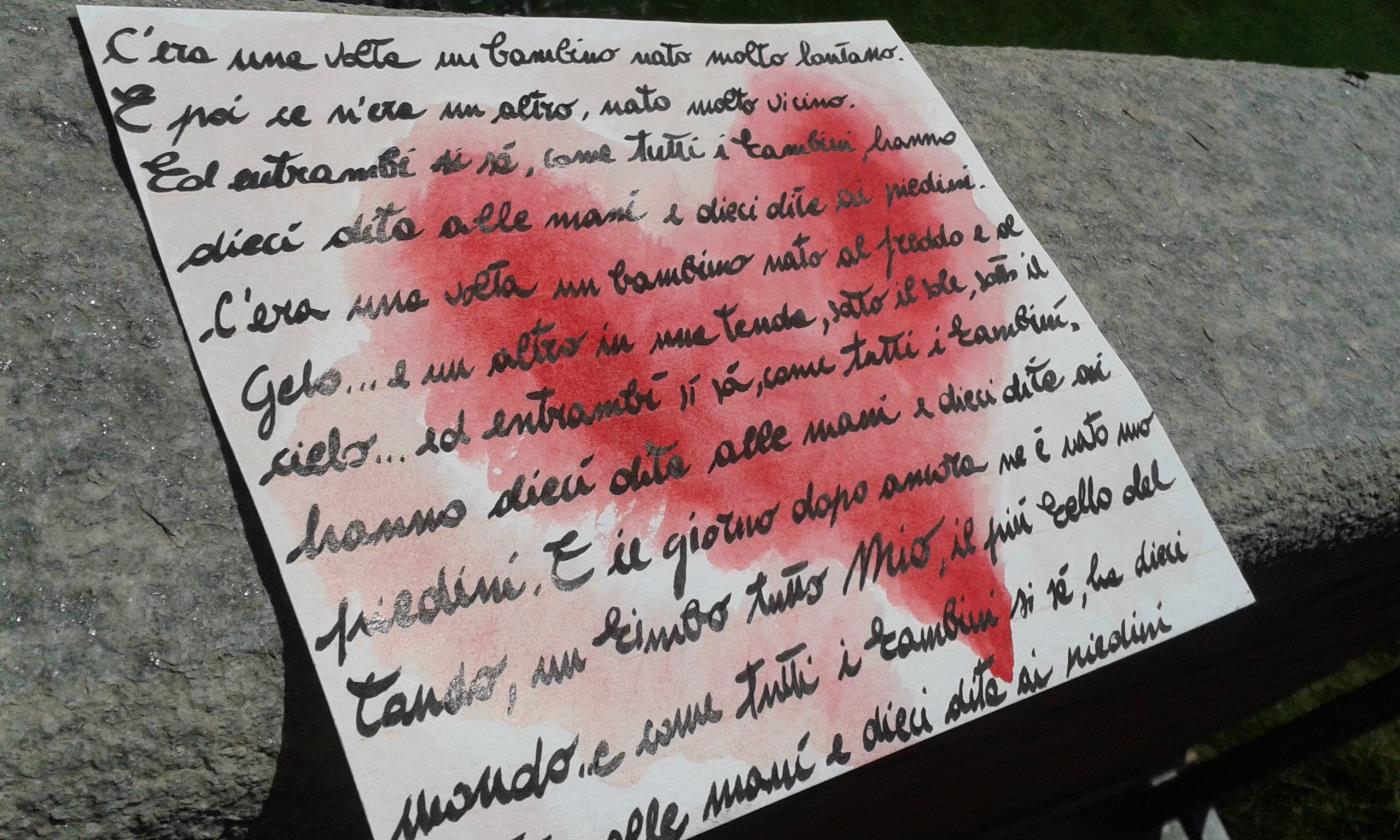 C'era una volta un bambino nato molto lontano.
E poi ce n'era un altro, nato molto vicino.
Ed entrambi si sá, come tutti i bambini, hanno
dieci dita alle mani e dieci dita ai piedini.
C'era una volta un bambino nato al freddo e al
Gelo... e un altro in una tenda, sotto il sole, sotto il
cielo... ed entrambi si sá, come tutti i bambini,
hanno dieci dita alle mani e dieci dita ai
piedini. E il giorno dopo ancora ne é nato uno
Tando, un bimbo tutto Mio, il piú bello del
mondo.. e come tutti i bambini si sá, ha dieci
alle mani e dieci dita ai piedini